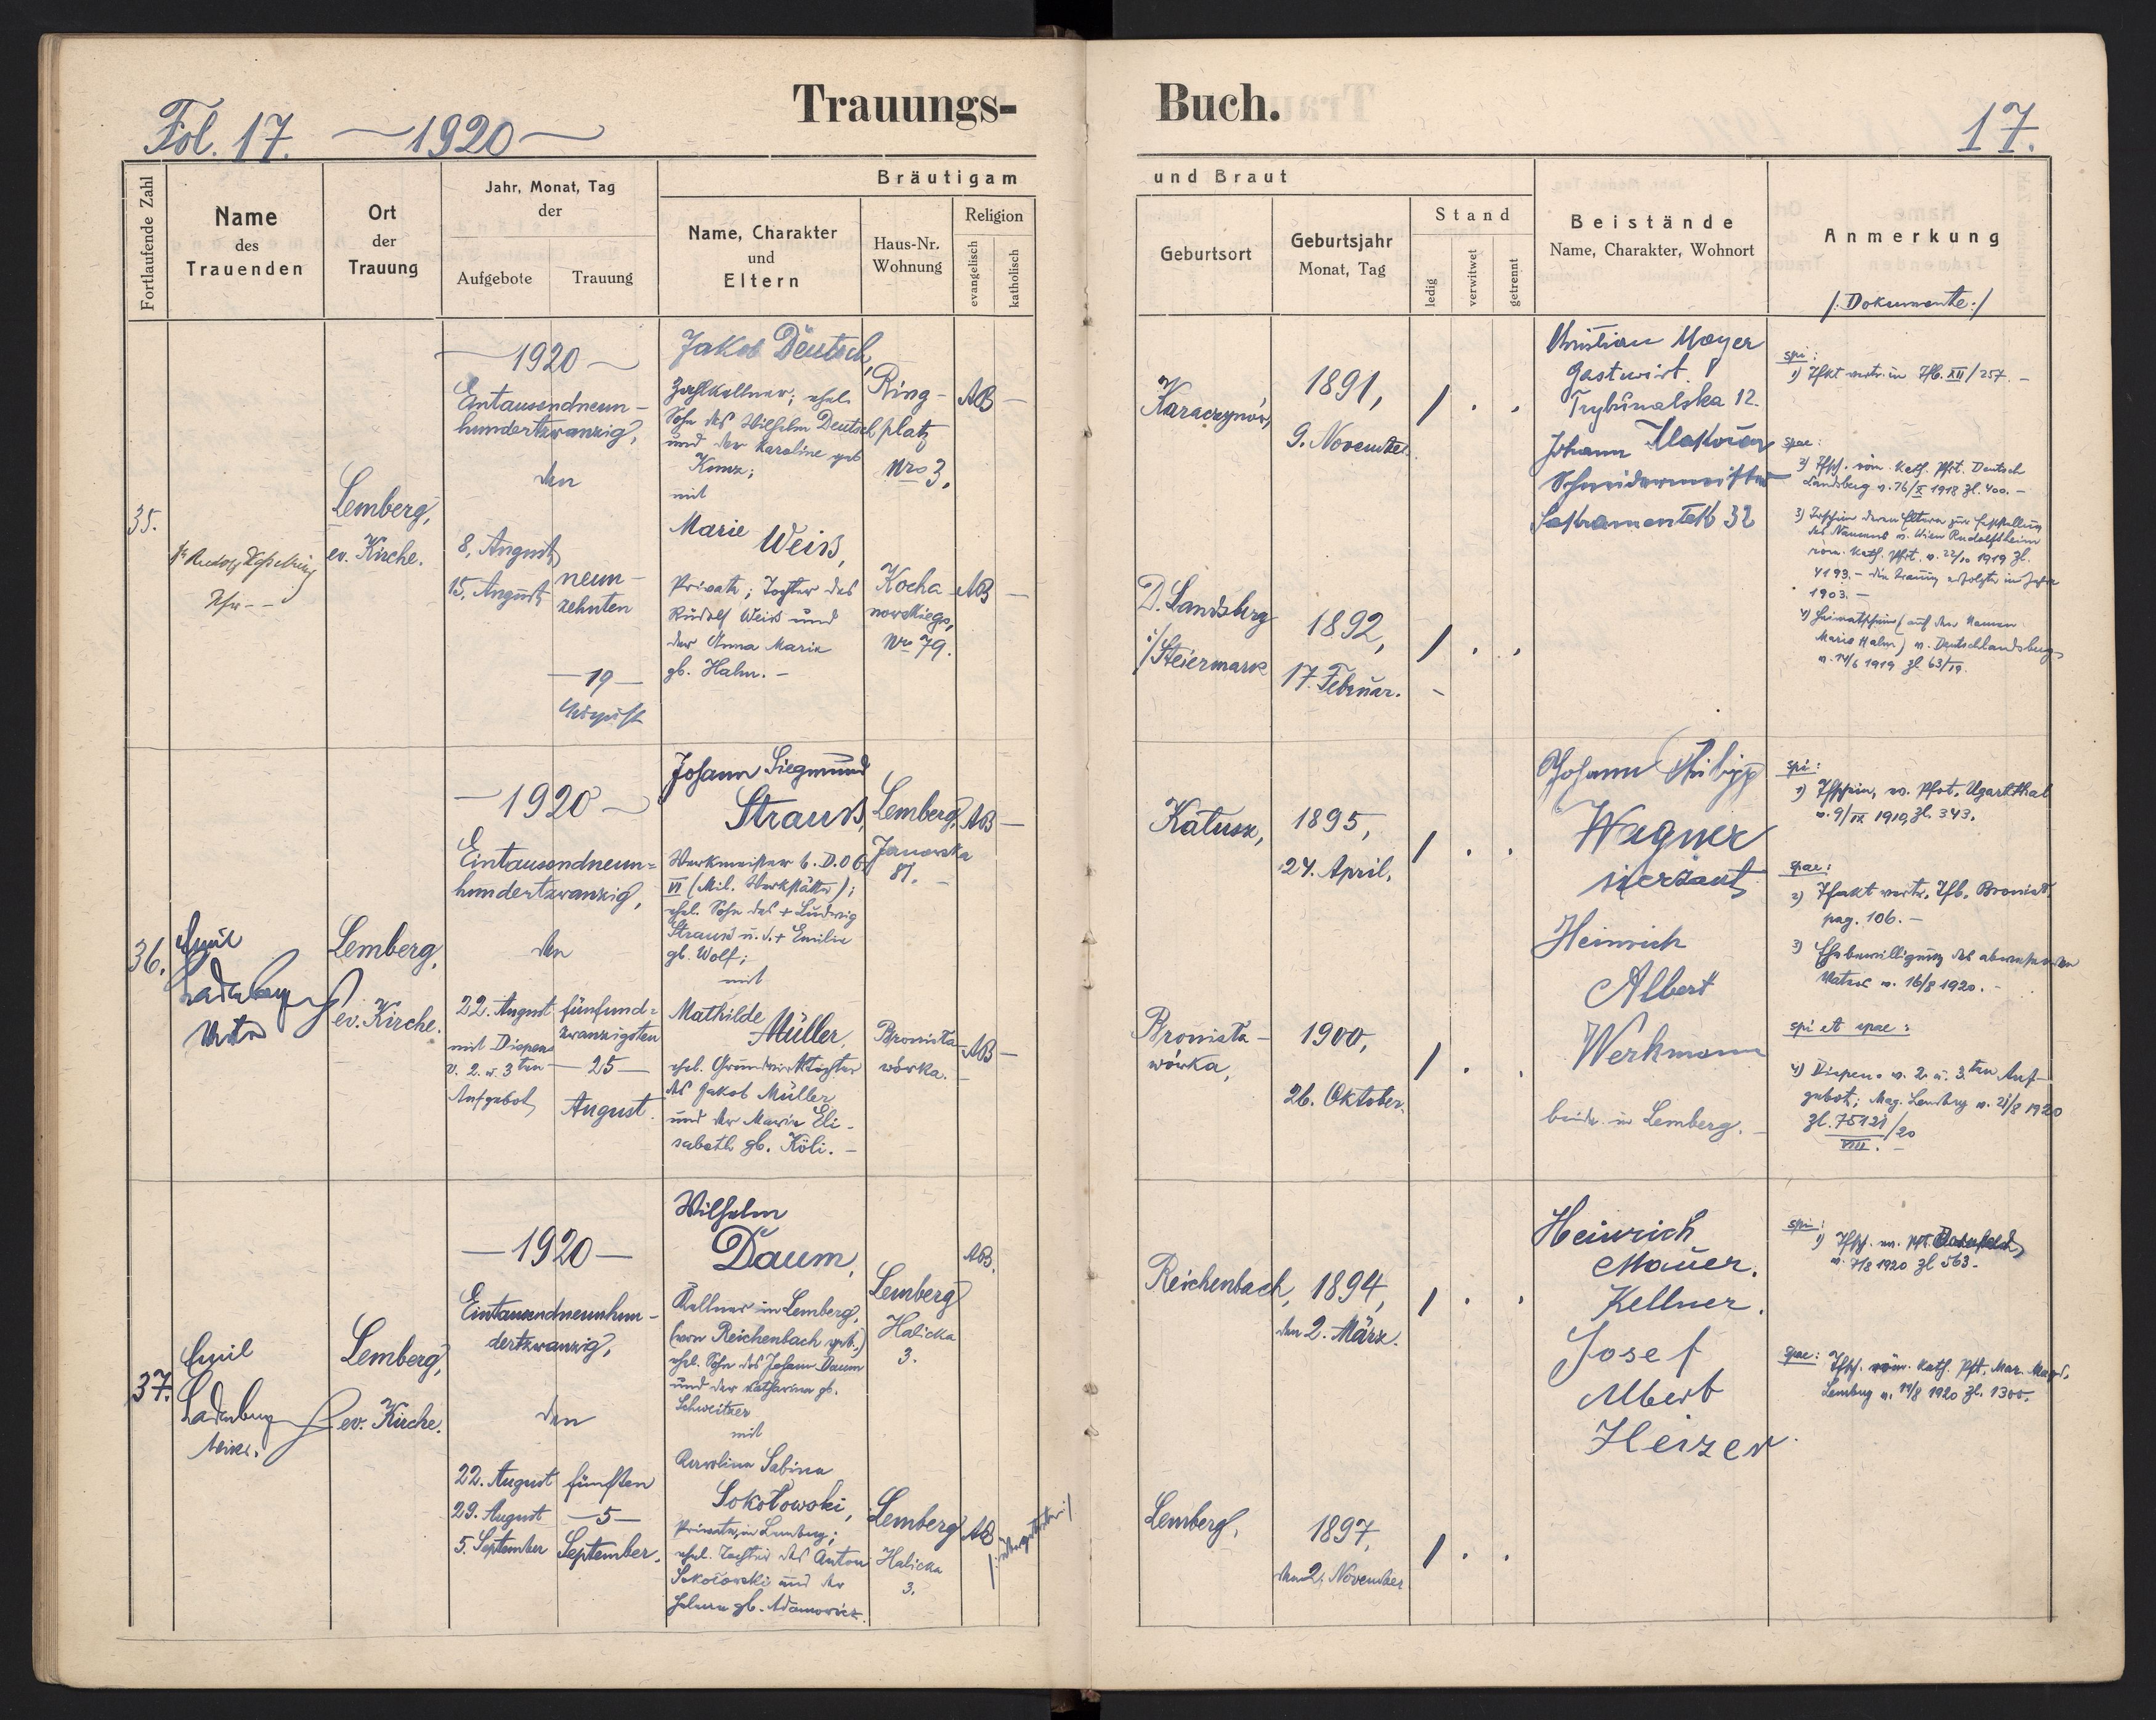 Trauungs- Buch.
Fol. 17. — 1920 — 17.
Fortlaufende Zahl
Name
des
Trauenden
Ort
der
Trauung
Jahr, Monat, Tag
der
Aufgebote Trauung
Bräutigam
Name, Charakter
und
Eltern
Haus-Nr.
Wohnung
Religion
evangelisch
katholisch
und Braut
Geburtsort
Geburtsjahr
Monat, Tag
Stand
ledig
verwitwet
getrennt
Beistände
Name, Charakter, Wohnort
Anmerkung
/: Dokumente :/
35.
Lemberg,
ev. Kirche.
— 1920 —
Eintausendneun-
hundertzwanzig,
den
8. August
15. August
neun-
zehnten
— 19 —
August
Jakob Deutsch,
Zahlkellner; ehel.
Sohn des Wilhelm Deutsch
und der Karoline geb
Kunz;
mit
Marie Weiss,
Private; Tochter des
Rudolf Weiss und
der Anna Marie
gb. Halm. —
Ring-
platz
Nro 3.
AB —
Kocha
nowskiego,
Nro 79.
AB —
Karaczynów,
1891,
9. November.
D. Landsberg
i/Steiermark
1892,
17. Februar.
Christian Mayer
Gastwirt.
Trybunalska 12.
Johann
Schneidermeister
Sakramentek 32
spi:
1) Tfkt vertr. in Tfb. XII/257. —
spae:
2) Tfsch. röm. kath. Pfrt. Deutsch
Landsberg v. 26/X 1918 Zl. 400. —
3) Trschein deren Eltern zur Feststellung
des Namens v. Wien Rudolfsheim
röm. kath. Pfrt. v. 22/10 1919 Zl.
4193. — die Trauung erfolgte im Jahre
1903. —
4) Heimatschein (auf den Namen
Marie Halm) v. Deutschlandsberg
v. 14/6 1919 Zl 63/19.
36.
Emil
Ladenberger
Lemberg,
ev. Kirche.
— 1920 —
Eintausendneun=
hundertzwanzig,
den
22. August
mit Dispens
v. 2. u. 3ten
Aufgebot
fünfund=
zwanzigsten
— 25 —
August.
Johann Siegmund
Strauss,
Werkmeister b. D.O.G.
VI (Mil. Werkstätte);
ehel. Sohn des + Ludwig
Strauss u. d. + Emilie
gb. Wolf;
mit
Mathilde
Müller,
ehel. Grundwirtstochter
des Jakob Müller
und der Marie Eli-
sabeth gb. Köli. —
Lemberg,
Janowska
81. —
AB —
Bronisła-
wówka.
AB —
Kałusz,
1895,
24. April.
Bronisła-
wówka,
1900,
26. Oktober.
Johann Philipp
Wagner
sierżant
Heinrich
Albert
Werkmann
beide in Lemberg. —
spi:
1) Tfschein, ev. Pfrt. Ugartsthal
v. 9/IX 1910, Zl. 343.
spae:
2) Tfakt vertr. Tfb. Bronisł.
pag. 106. —
3) Ehebewilligung des abwesenden
Vaters v. 16/8 1920. —
spi et spae:
4) Dispens. v. 2. u. 3.ten Auf-
gebot; Mag. Lemberg v. 21/8 1920
Zl. 75121/20
VIII. —
37.
Emil
Ladenberger
Lemberg,
ev. Kirche.
— 1920 —
Eintausendneunhun-
dertzwanzig,
den
22. August
29. August
5. September
fünften
— 5 —
September.
Wilhelm
Daum,
Kellner in Lemberg,
(von Reichenbach geb.)
ehel. Sohn des Johann Daum
und der Katharina gb.
Schweitzer
mit
Karolina Sabina
Sokołowski,
Private, in Lemberg;
ehel. Tochter des Anton
Sokołowski und der
Helena gb. Adamowicz.
Lemberg
Halicka
3.
AB.
Lemberg
Halicka
3.
AB
/: übergetreten :/
Reichenbach,
1894,
den 2. März.
Lemberg,
1897,
den 2. November
Heinrich
Mauer.
Kellner.
Josef
Albert
Heizer.
spi:
1) Tfsch. ev. Pfrt. Dornfeld
v. 7/8 1920 Zl 563. —
spae: Tfsch. röm. kath. Pfrt. Mar. Magd.
Lemberg v. 14/8 1920 Zl. 1300.